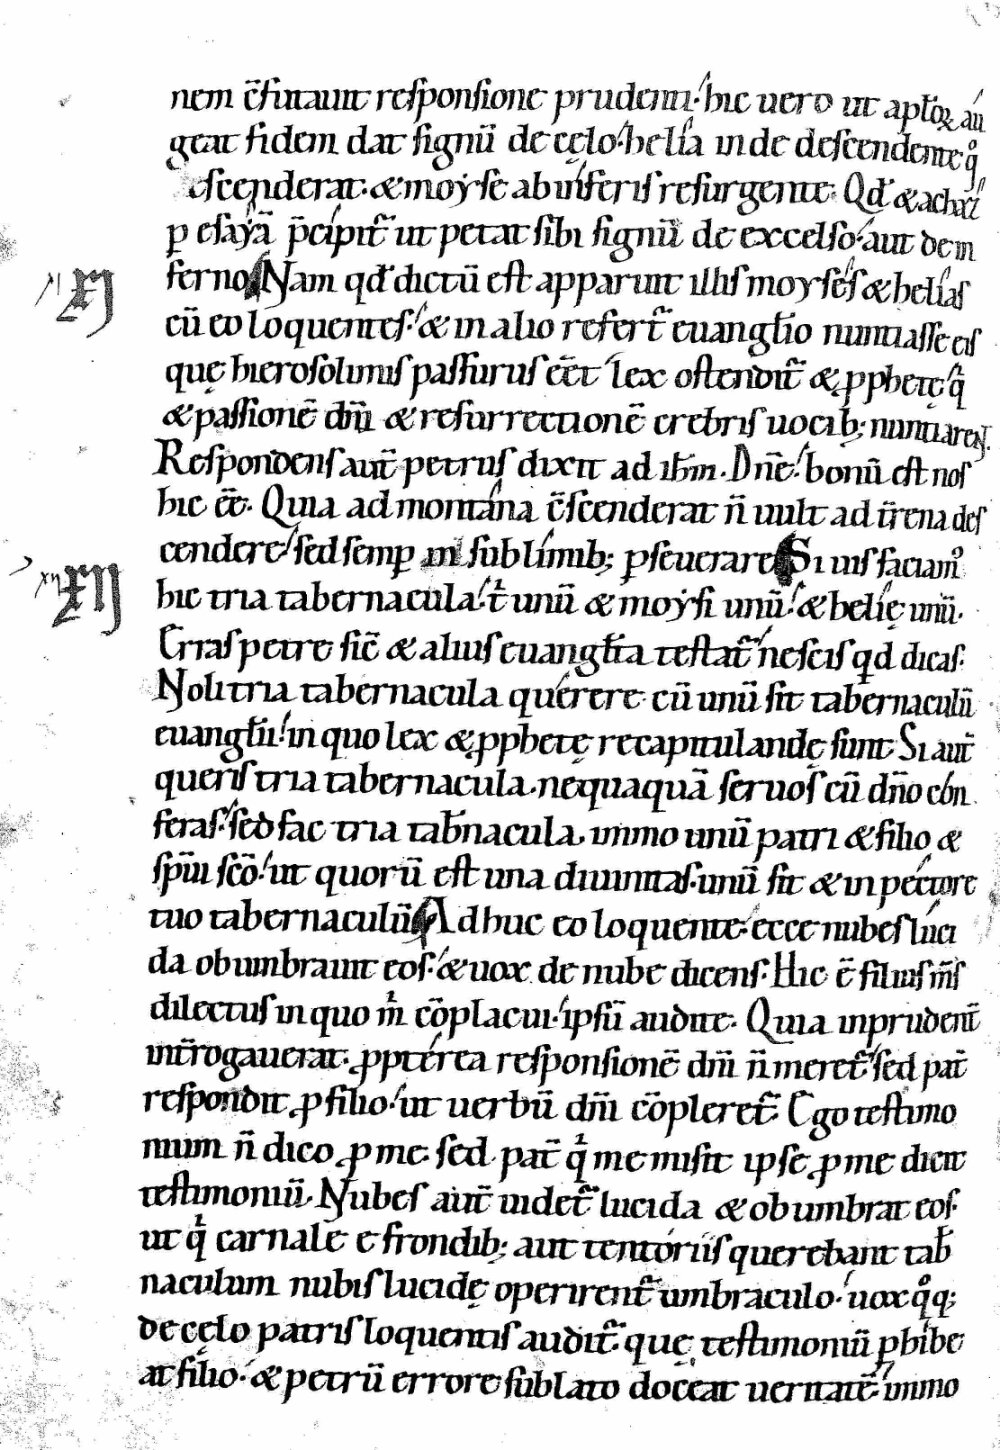 nem c̄futauit responsione prudenti. hic uero ut apl̄oꝝ au
geat fidem dat signū de cęlo. helia inde descendente qͦ
escenderat. & moyse ab inferis resurgente. Qd̄ & achaz
p esayā p̄cipit̄ ut petat sibi signū de excelso. aut de in
ferno Nam qd̄ dictū est apparuit illis moyses & helias
XI
cū eo loquentes. & in alio refert̄ euangl̄io nuntiasse eis
quę hierosolimis passurus eēt lex ostendit̄ & ꝓphetę q̄
& passionē dn̄i & resurrectionē crebris uocib; nuntiareN̄.
Respondens aut̄ petrus dixit ad ih̄m. Dn̄e. bonū est nos
hic eē. Quia ad montana c̄scenderat n̄ uult ad t̄rena des
cendere sed semꝑ in sublimib; ꝑseuerare Si uis faciamꝰ
XII
hic tria tabernacula. t̄ unū & moysi unū. & helię unū.
Erras petre sic̄ & alius euangl̄ta testat̄ nescis qd̄ dicas.
Noli tria tabernacula querere cū unū sit tabernaculū
euangl̄ii. in quo lex & ꝓphetę recapitulandę sunt Si aut̄
queris tria tabernacula. nequaquā seruos cū dn̄o con
feras. sed fac tria tab̄nacula. immo unū patri & filio &
sp̄ui scō. ut quorū est una diuinitas. unū sit & in pectore
tuo tabernaculū Adhuc eo loquente. ecce nubes luci
da obumbrauit eos. & uox de nube dicens. Hic ē filius m̄s
dilectus in quo m̄ cōplacui. ipsū audite. Quia inprudent̄
int̄rogauerat. ꝓpterea responsionē dn̄i n̄ meret̄ sed pat̄
respondit ꝓ filio. ut uerbū dn̄i cōpleret̄. Ego testimo
nium n̄ dico ꝓ me. sed pat̄ q̄ me misit ipse ꝓ me dicit
testimoniū. Nubes aut̄ uidet̄ lucida & obumbrat eos.
ut q̄ carnale e frondib; aut tentoriis querebant tab̄
naculum nubis lucidę operirent̄ umbraculo. uox qͦq;
de cęlo patris loquentis audit̄. quę testimoniū phibe
at filio. & petrū errore sublato doceat ueritatē. immo